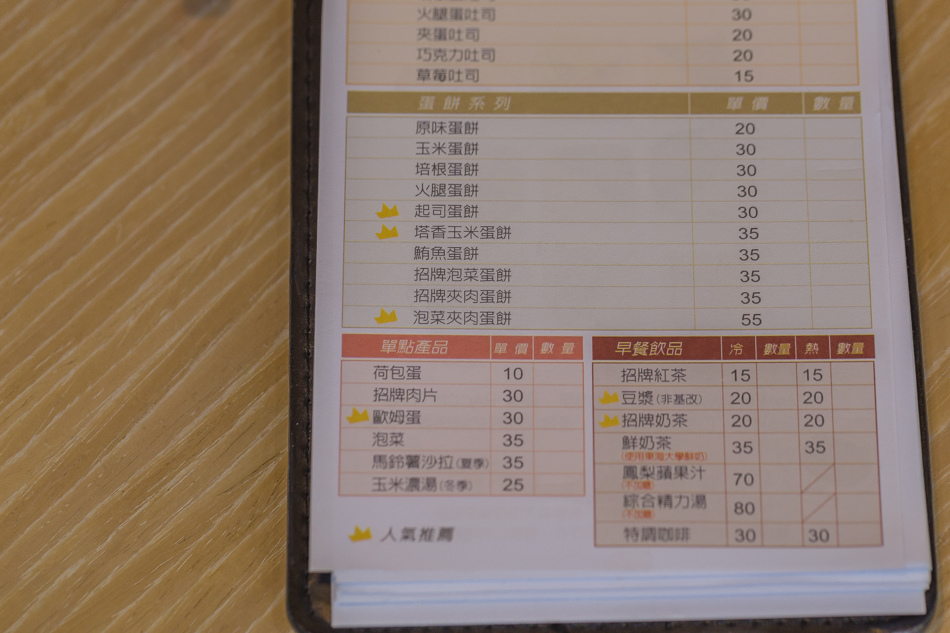 火腿蛋吐司 30
夾蛋吐司 20
巧克力吐司 20
草莓吐司 15
蛋餅系列 單價 數量
原味蛋餅 20
玉米蛋餅 30
培根蛋餅 30
火腿蛋餅 30
起司蛋餅 30
塔香玉米蛋餅 35
鮪魚蛋餅 35
招牌泡菜蛋餅 35
招牌夾肉蛋餅 35
泡菜夾肉蛋餅 55
單點產品 單價 數量
荷包蛋 10
招牌肉片 30
歐姆蛋 30
泡菜 35
馬鈴薯沙拉(夏季) 35
玉米濃湯(冬季) 25
人氣推薦
早餐飲品 冷 數量 熱 數量
招牌紅茶 15 15
豆漿(非基改) 20 20
招牌奶茶 20 20
鮮奶茶 35 35
(使用東海大學鮮奶)
鳳梨蘋果汁 70
(不加糖)
綜合精力湯 80
(不加糖)
特調咖啡 30 30